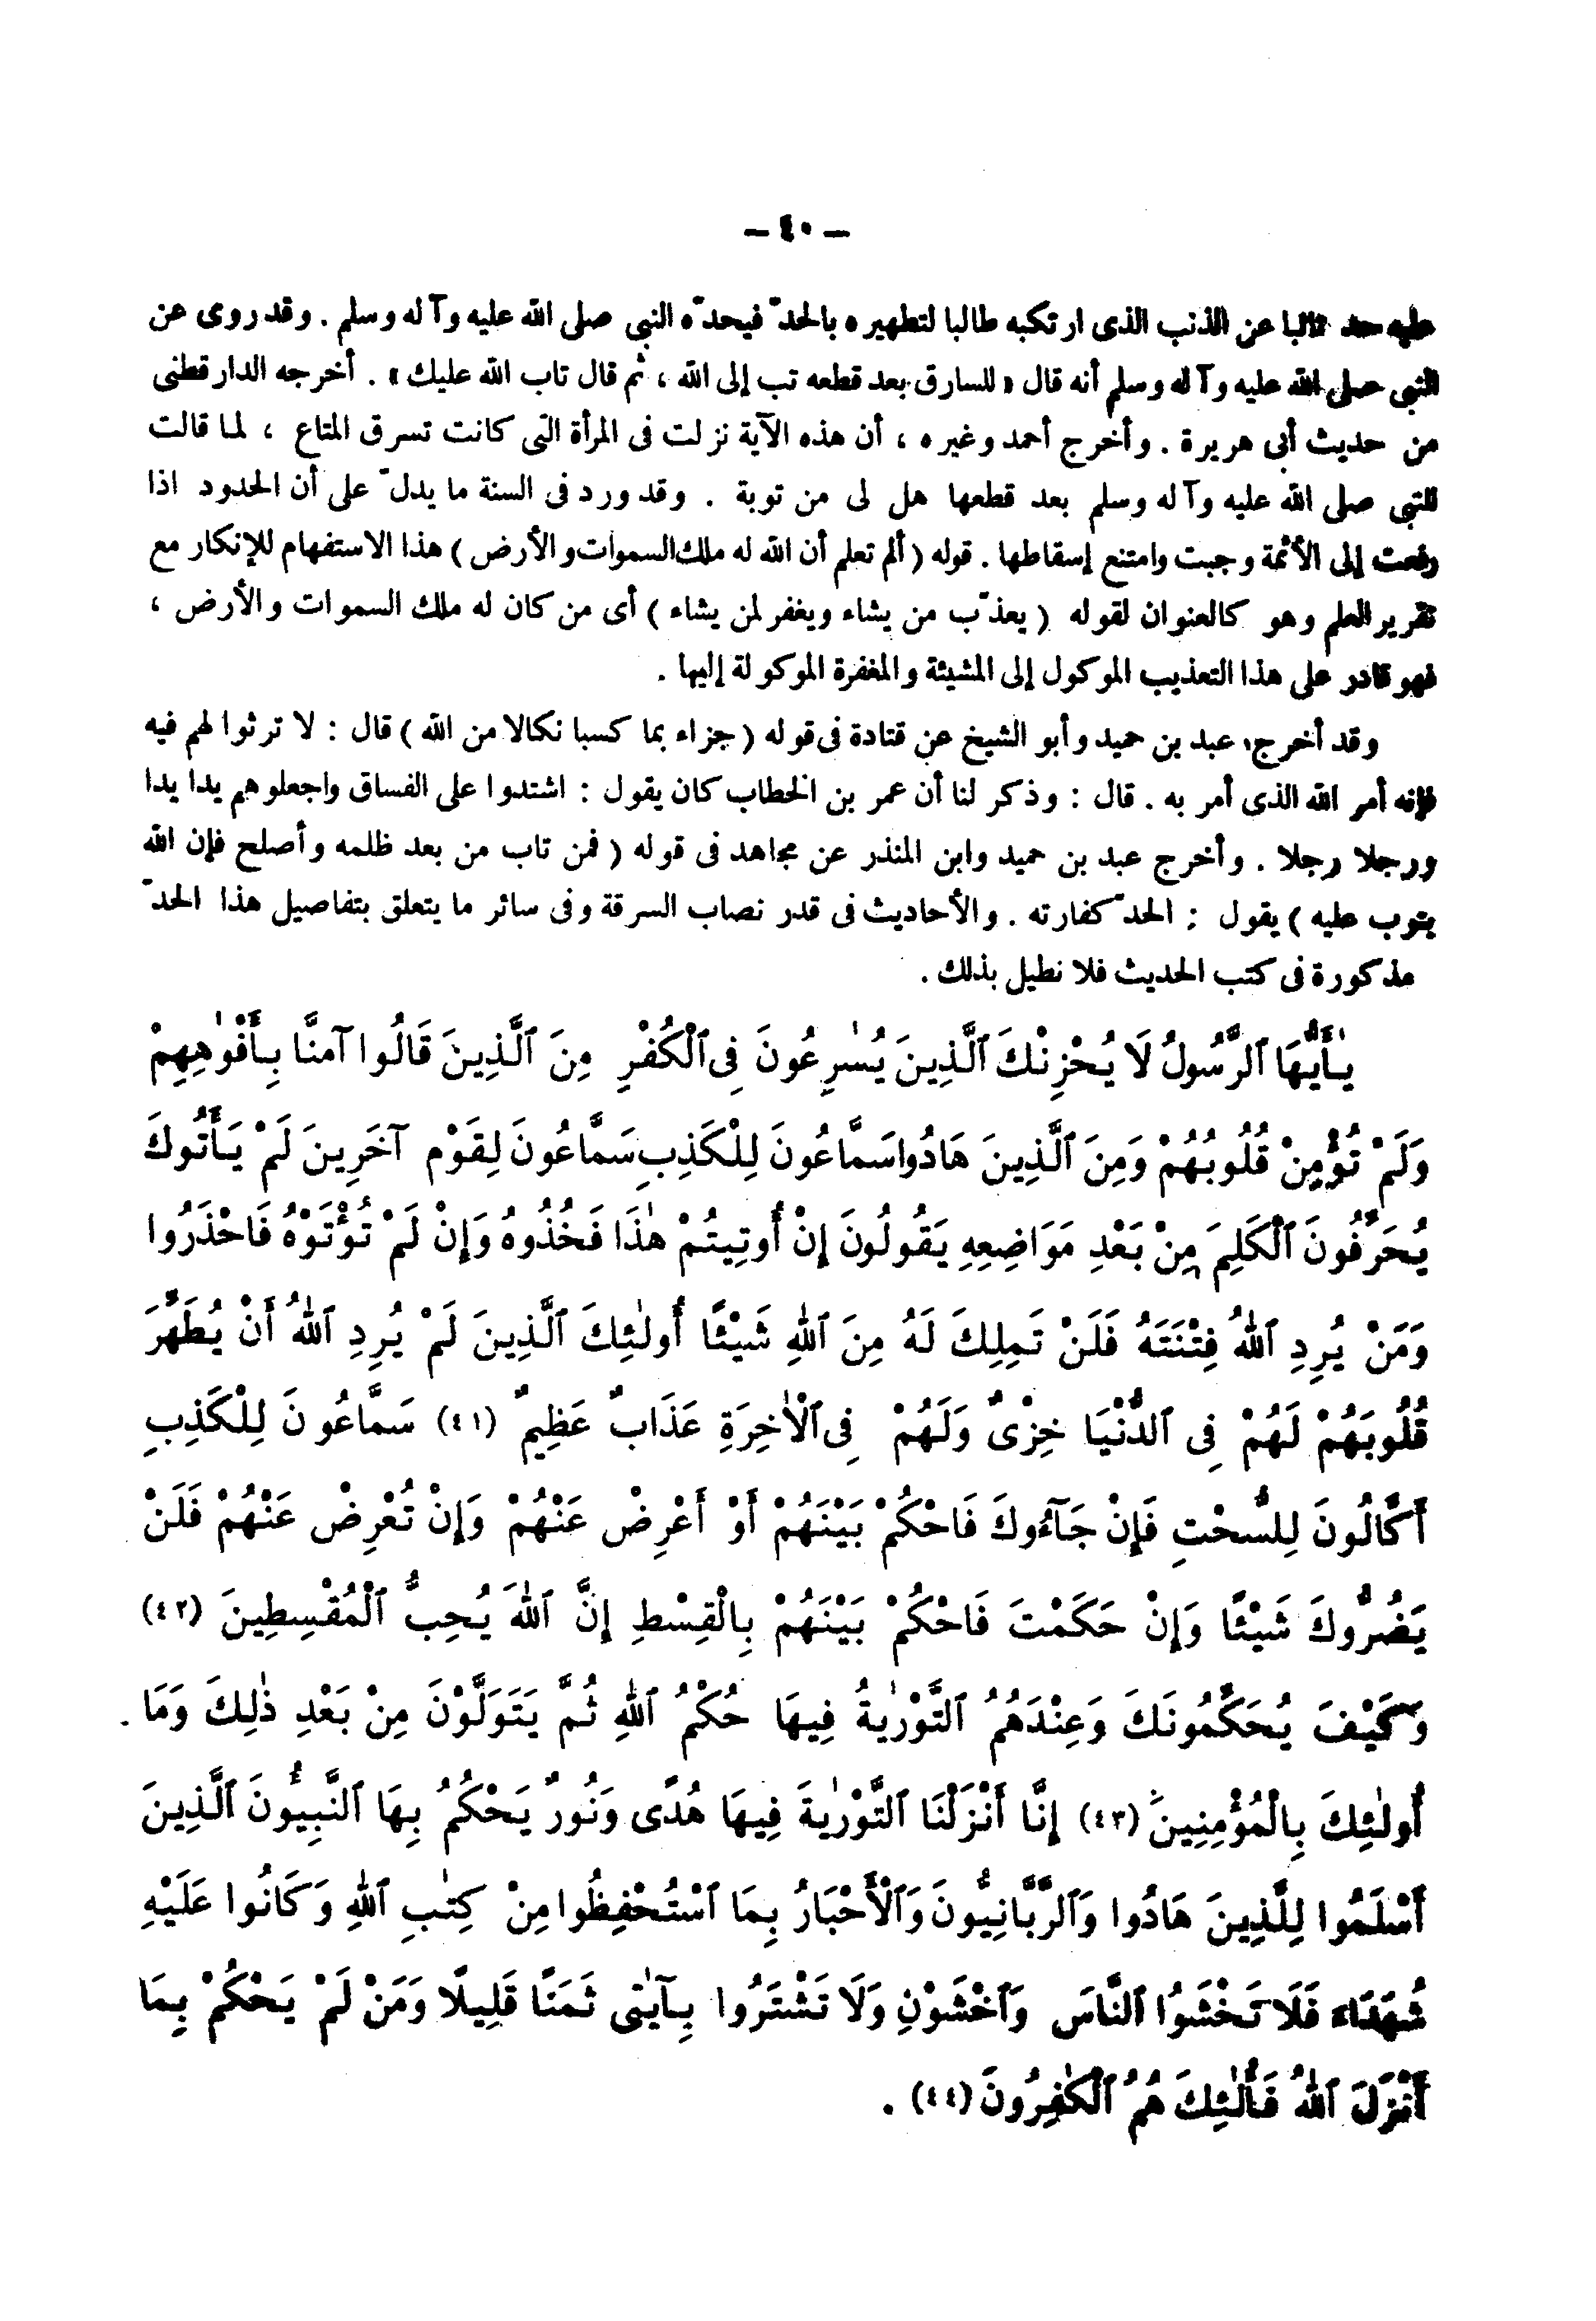 — ٤٠ —
عليه حد تائبا عن الذنب الذى ارتكبه طالبا لتطهيره بالحدّ فيحدّه النبى صلى الله عليه وآله وسلم . وقد روى عن
النبى صلى الله عليه وآله وسلم أنه قال « للسارق بعد قطعه تب إلى الله ، ثم قال تاب الله عليك » . أخرجه الدارقطنى
من حديث أبى هريرة . وأخرج أحمد وغيره ، أن هذه الآية نزلت فى المرأة التى كانت تسرق المتاع ، لما قالت
للنبى صلى الله عليه وآله وسلم بعد قطعها هل لى من توبة . وقد ورد فى السنة ما يدلّ على أن الحدود اذا
رفعت إلى الأئمة وجبت وامتنع إسقاطها . قوله ( ألم تعلم أن الله له ملك السموات والأرض ) هذا الاستفهام للإنكار مع
تقرير العلم وهو كالعنوان لقوله ( يعذّب من يشاء ويغفر لمن يشاء ) أى من كان له ملك السموات والأرض ،
فهو قادر على هذا التعذيب الموكول إلى المشيئة والمغفرة الموكولة إليها .
وقد أخرج عبد بن حميد وأبو الشيخ عن قتادة فى قوله ( جزاء بما كسبا نكالا من الله ) قال : لا ترثوا لهم فيه
فإنه أمر الله الذى أمر به . قال : وذكر لنا أن عمر بن الخطاب كان يقول : اشتدوا على الفساق واجعلوهم يدا يدا
ورجلا رجلا . وأخرج عبد بن حميد وابن المنذر عن مجاهد فى قوله ( فمن تاب من بعد ظلمه وأصلح فإن الله
يتوب عليه ) يقول : الحدّ كفارته . والأحاديث فى قدر نصاب السرقة وفى سائر ما يتعلق بتفاصيل هذا الحدّ
مذكورة فى كتب الحديث فلا نطيل بذلك .
يٰأَيُّهَا ٱلرَّسُولُ لَا يُحْزِنْكَ ٱلَّذِينَ يُسٰرِعُونَ فِى ٱلْكُفْرِ مِنَ ٱلَّذِينَ قَالُوا آمَنَّا بِأَفْوٰهِهِمْ
وَلَمْ تُؤْمِنْ قُلُوبُهُمْ وَمِنَ ٱلَّذِينَ هَادُوا سَمَّاعُونَ لِلْكَذِبِ سَمَّاعُونَ لِقَوْمٍ آخَرِينَ لَمْ يَأْتُوكَ
يُحَرِّفُونَ ٱلْكَلِمَ مِنْ بَعْدِ مَوَاضِعِهِ يَقُولُونَ إِنْ أُوتِيتُمْ هٰذَا فَخُذُوهُ وَإِنْ لَمْ تُؤْتَوْهُ فَاحْذَرُوا
وَمَنْ يُرِدِ ٱللهُ فِتْنَتَهُ فَلَنْ تَمْلِكَ لَهُ مِنَ ٱللهِ شَيْئًا أُولٰئِكَ ٱلَّذِينَ لَمْ يُرِدِ ٱللهُ أَنْ يُطَهِّرَ
قُلُوبَهُمْ لَهُمْ فِى ٱلدُّنْيَا خِزْىٌ وَلَهُمْ فِى ٱلْاٰخِرَةِ عَذَابٌ عَظِيمٌ (٤١) سَمَّاعُونَ لِلْكَذِبِ
أَكَّالُونَ لِلسُّحْتِ فَإِنْ جَآءُوكَ فَاحْكُمْ بَيْنَهُمْ أَوْ أَعْرِضْ عَنْهُمْ وَإِنْ تُعْرِضْ عَنْهُمْ فَلَنْ
يَضُرُّوكَ شَيْئًا وَإِنْ حَكَمْتَ فَاحْكُمْ بَيْنَهُمْ بِالْقِسْطِ إِنَّ ٱللهَ يُحِبُّ ٱلْمُقْسِطِينَ (٤٢)
وَكَيْفَ يُحَكِّمُونَكَ وَعِنْدَهُمُ ٱلتَّوْرٰيةُ فِيهَا حُكْمُ ٱللهِ ثُمَّ يَتَوَلَّوْنَ مِنْ بَعْدِ ذٰلِكَ وَمَا
أُولٰئِكَ بِالْمُؤْمِنِينَ (٤٣) إِنَّا أَنْزَلْنَا ٱلتَّوْرٰيةَ فِيهَا هُدًى وَنُورٌ يَحْكُمُ بِهَا ٱلنَّبِيُّونَ ٱلَّذِينَ
أَسْلَمُوا لِلَّذِينَ هَادُوا وَٱلرَّبَّانِيُّونَ وَٱلْأَحْبَارُ بِمَا ٱسْتُحْفِظُوا مِنْ كِتٰبِ ٱللهِ وَكَانُوا عَلَيْهِ
شُهَدَاءَ فَلَا تَخْشَوُا ٱلنَّاسَ وَٱخْشَوْنِ وَلَا تَشْتَرُوا بِآيٰتِى ثَمَنًا قَلِيلًا وَمَنْ لَمْ يَحْكُمْ بِمَا
أَنْزَلَ ٱللهُ فَأُلٰئِكَ هُمُ ٱلْكٰفِرُونَ (٤٤) .